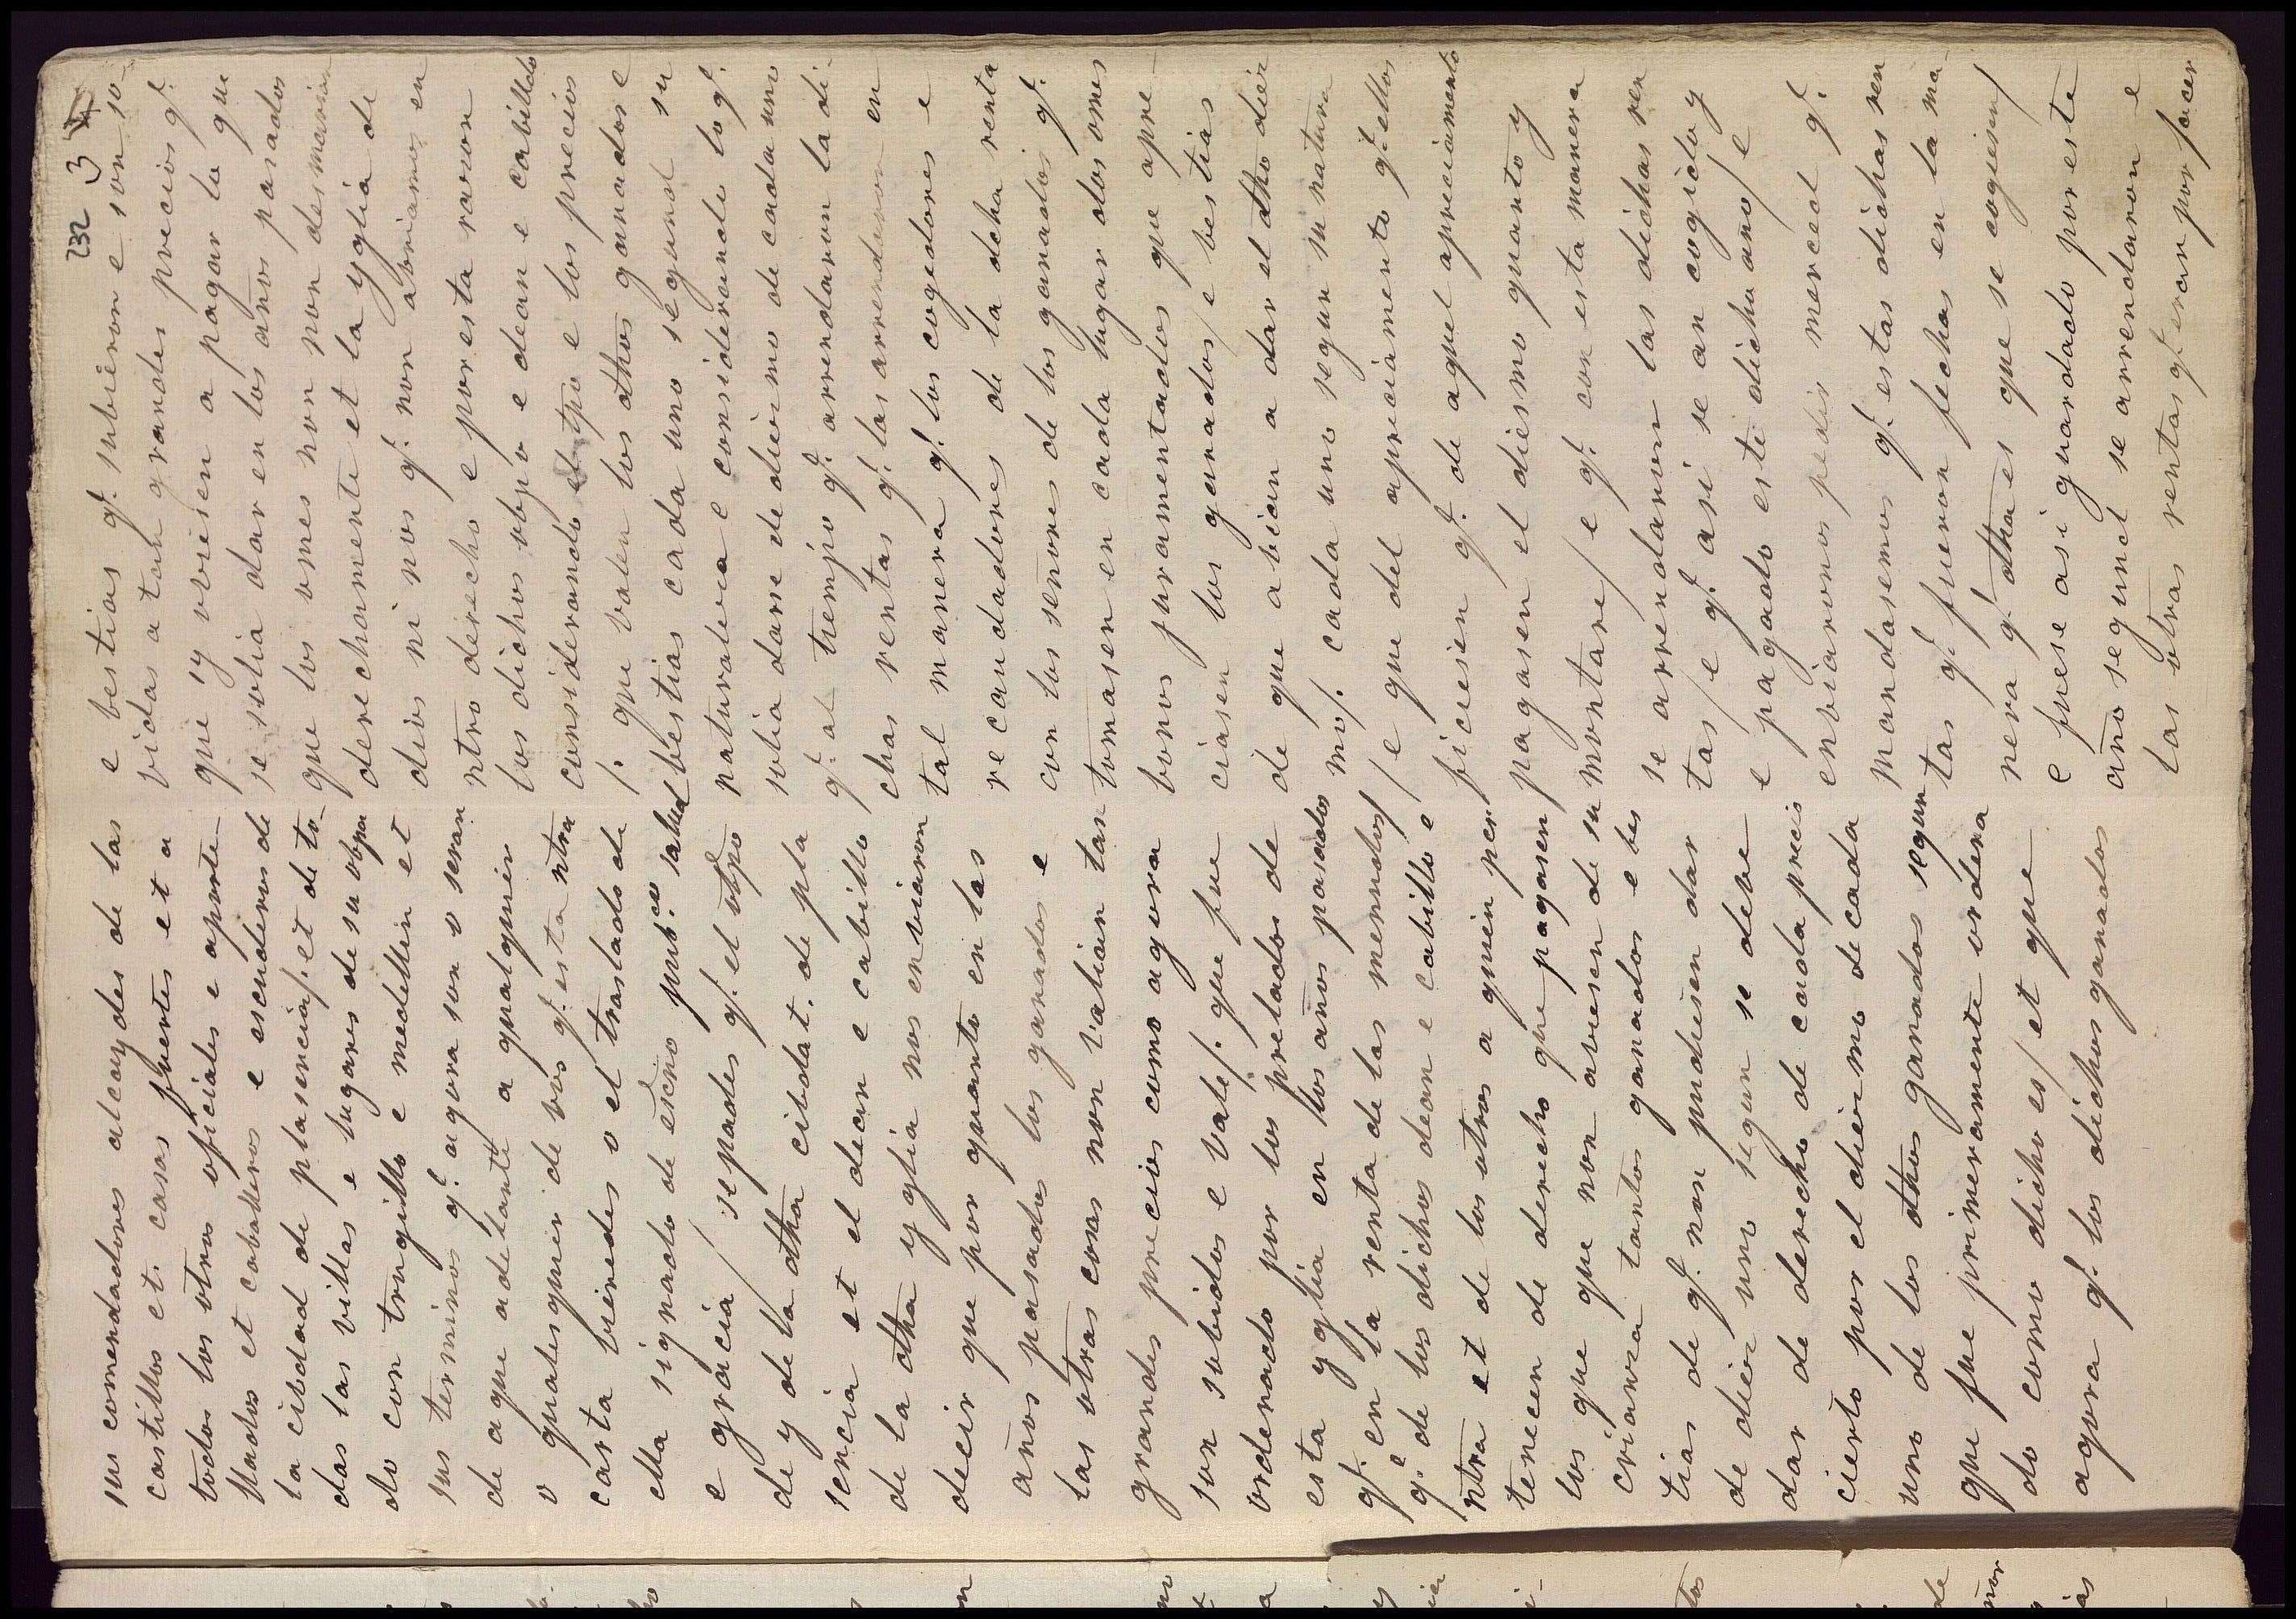 232 3
sus comendadores alcaydes de las
castillos et. casas fuertes et a
todos los otros oficiales e aporte-
llados et caballeros e escuderos de
la cibdad de plasencia/. et de to-
das las villas e lugares de su obpa
do con trugillo e medellin et
sus terminos q.e agora son o seran
de aqui adelante a qualquier
o qualesquier de vos q.e esta ntra
carta vieredes o el traslado de
ella signado de escno pub.co salud
e gracia / sepades q.e el obpo
de y de la dha cibdat. de pla
sencia et el dean e cabillo
de la dha yglia nos enviaron
decir que por quanto en los
años pasados los ganados e
las otras cosas non valian tan
grandes precios como agora
son subidos e vale/. que fue
ordenado por los prelados de
esta yglia en los años pasados
q.e en la renta de las menudos/
q.e de los dichos dean e cabillo e
ntra et de los otros a quien per
tenecen de derecho que pagasen
los que que non abiesen de su
crianza tantos ganados e bes
tias de q.e non pudiesen dar
de diez uno segun se debe
dar de derecho de cada precis
cierto por el diezmo de cada
uno de los dhos ganados segun
que fue primeramente ordena
do como dicho es/ et que
agora q.e los dichos ganados
e bestias q.e subieron e son so-
bidas a tan grandes precios q.e
que y oviesen a pagar lo que
se solia dar en los años pasados
que los omes non non desmarian
derechamente et la yglia de
dios ni nos q.e non abriamos en
ntro derecho e por esta rason
los dichos obpo e dean e cabilldo
considerando el tpo e los precios
/. que valen los dhos ganados e
bestias cada uno segund su
naturaleza e considerando lo q.e
solia darse de diezmo de cada uno
q.e al tiempo q.e arrendaron la di-
chas rentas q.e las arrendaron en
tal manera q.e los cogedores e
recaudadores de la dcha renta
con los señores de los ganados q.e
tomasen en cada lugar dos omes
bonos juramentados que apre-
ciasen los ganados/ e bestias
de que abian a dar el dho diez
mo/. cada uno segun su natura
/ e que del apreciamento q.e ellos
ficiesen q.e de aquel apreciamento
pagasen el diesmo quanto y
montare/ e q.e con esta manera
se arrendaron las dichas ren
tas/ e q.e asi se an cogido y
e pagado este dicho año/ e
enviaronos pedir merced q.e
mandasemos q.e estas dichas ren
tas q.e fueron fechas en la ma-
nera q.e dha es que se cogiesen/
e fuese asi guardado por este
año segunet se arrendaron e
las otras rentas q.e eran por facer